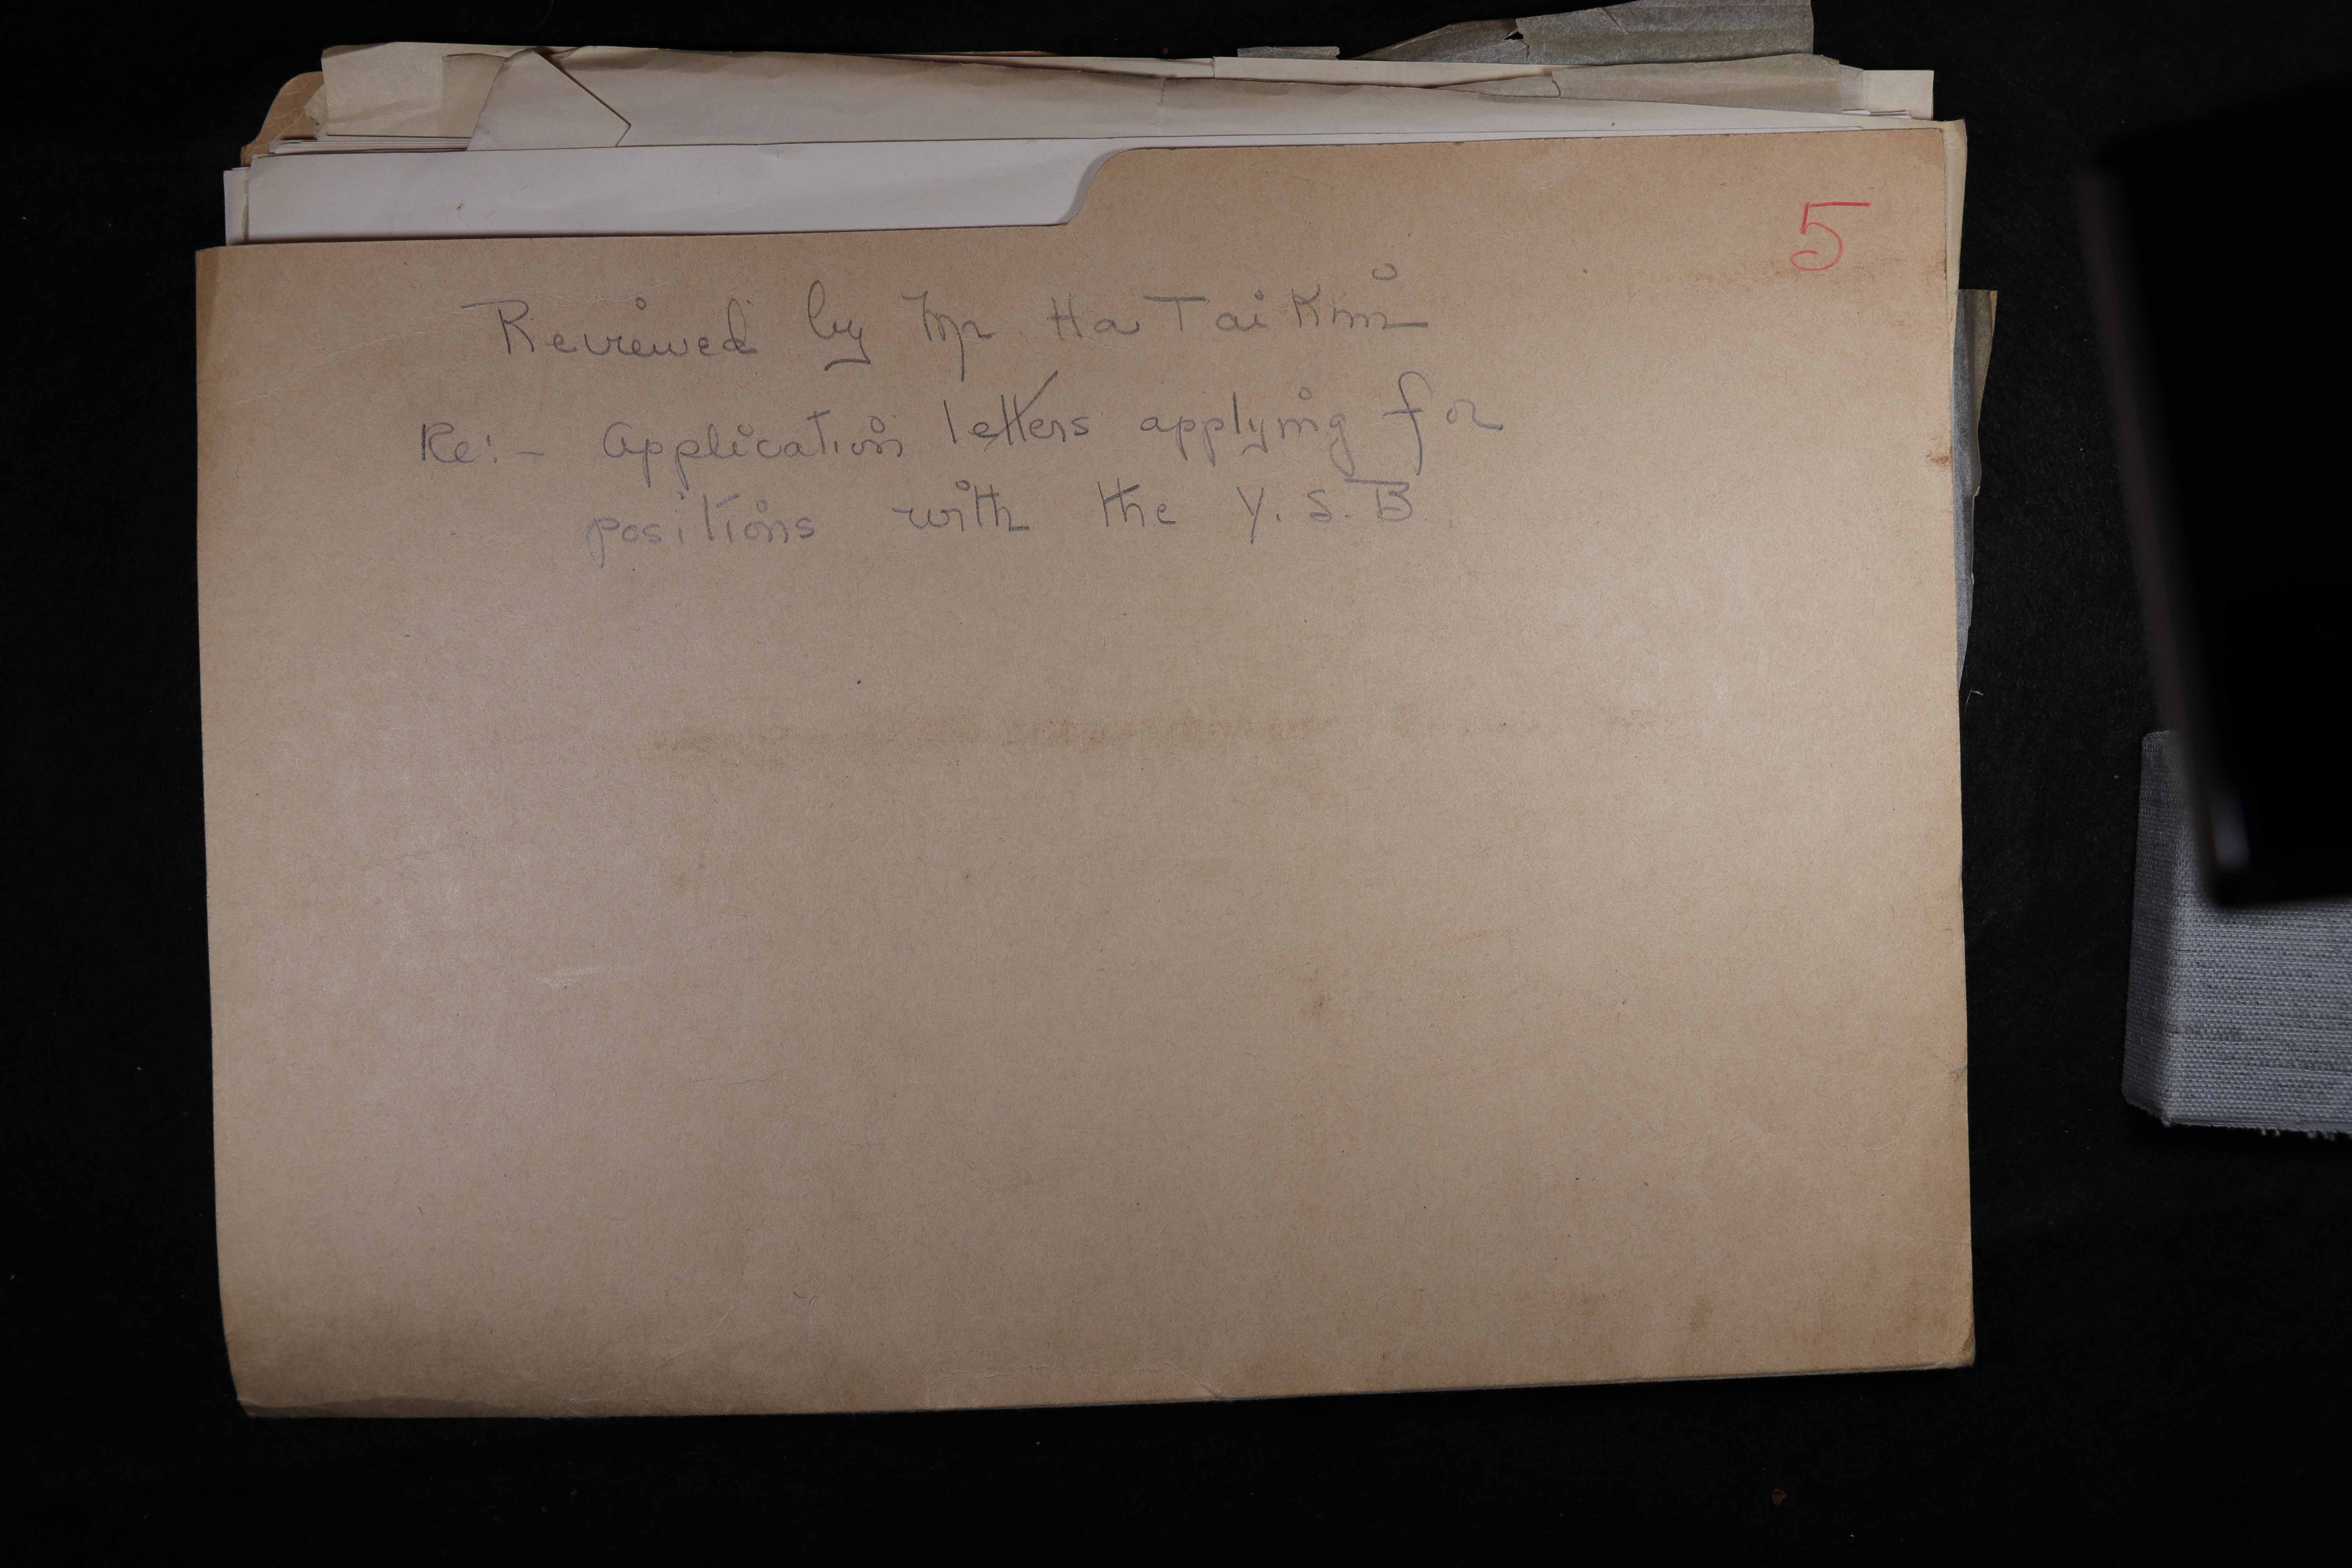 5
Reviewed by Mr. Ha Tai Kim
Re:- Application letters applying for
positions with the Y. S. B.